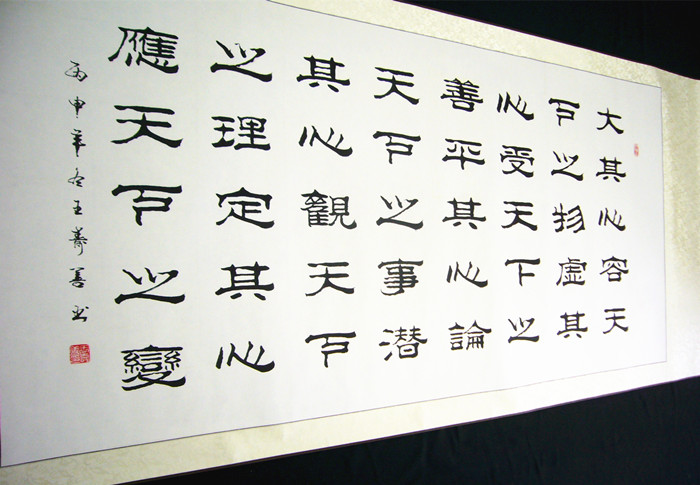 大其心容天
下之物虛其
心受天下之
善平其心論
天下之事潜
其心觀天下
之理定其心
應天下之變
丙申年冬王寿善书